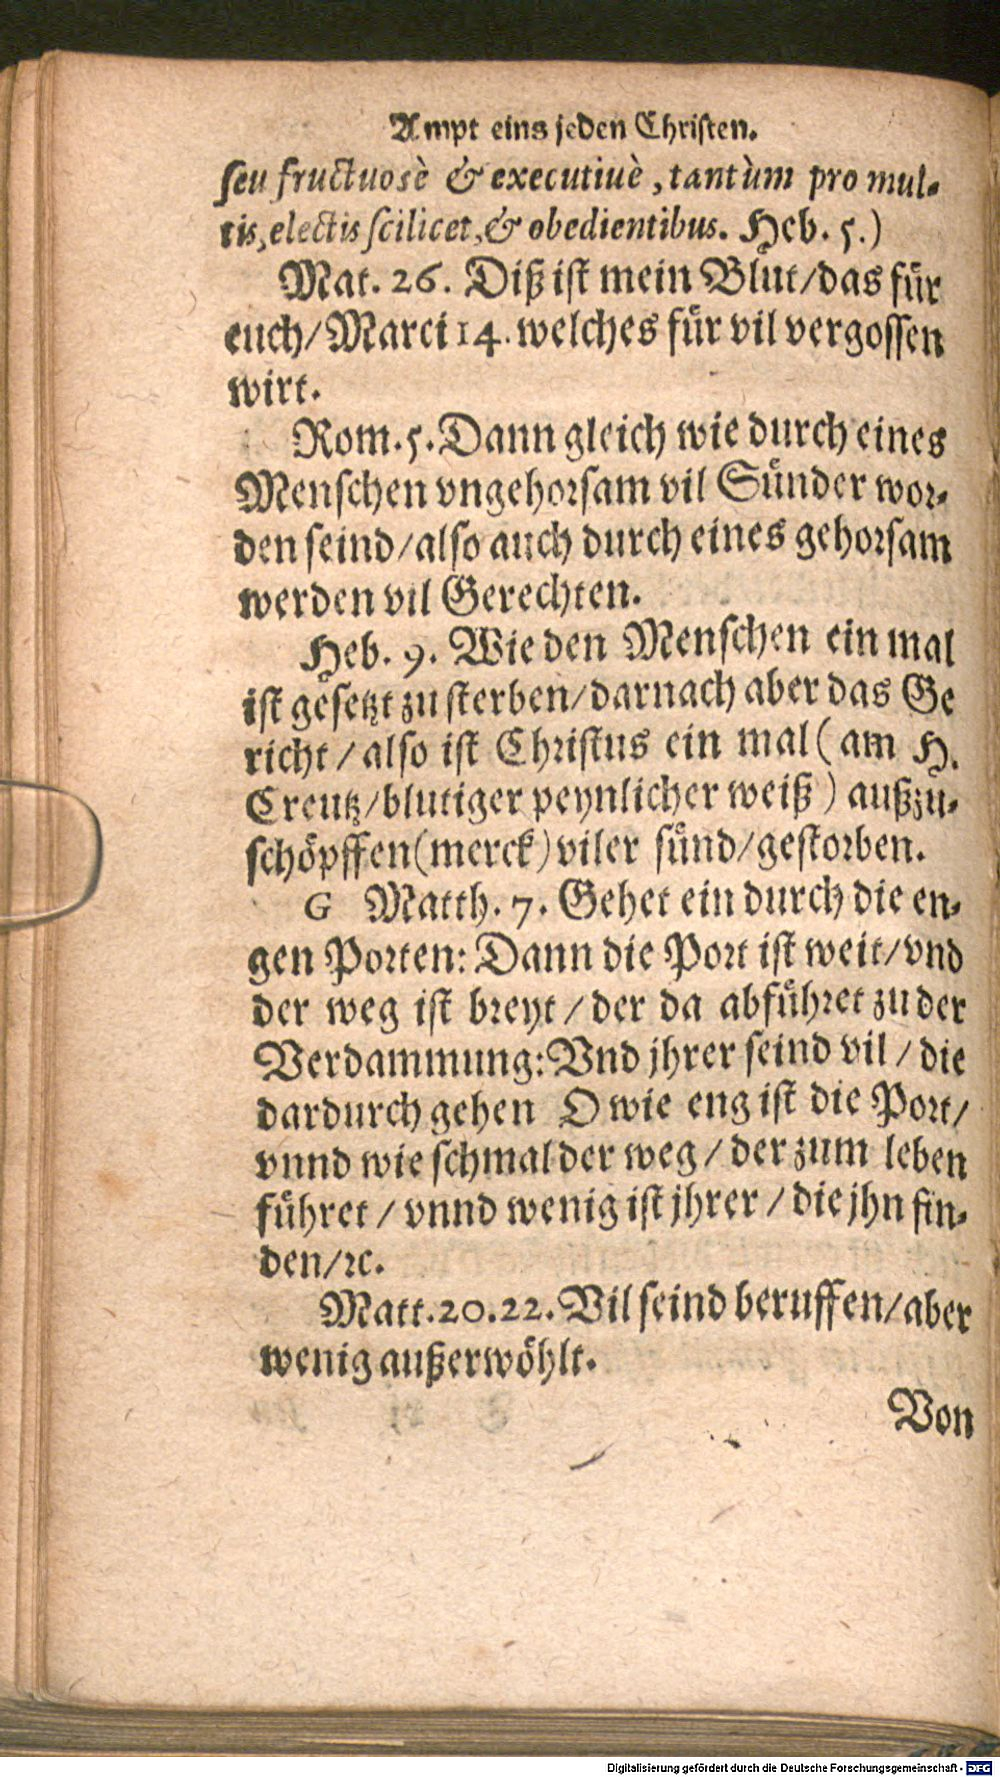 Ampt eins jeden Christen.
seu fructuosè & executiuè, tantùm pro mul-
tis, electis scilicet, & obedientibus. Heb. 5.)
Mat. 26. Diß ist mein Blut/das für
euch/Marci 14. welches für vil vergossen
wirt.
Rom. 5. Dann gleich wie durch eines
Menschen vngehorsam vil Sünder wor-
den seind/also auch durch eines gehorsam
werden vil Gerechten.
Heb. 9. Wie den Menschen ein mal
ist gesetzt zu sterben/darnach aber das Ge
richt/also ist Christus ein mal (am H.
Creutz/blutiger peynlicher weiß) außzu-
schöpffen (merck) viler sünd/gestorben.
G Matth. 7. Gehet ein durch die en-
gen Porten: Dann die Port ist weit/vnd
der weg ist breyt/der da abführet zu der
Verdammung: Vnd jhrer seind vil/die
dardurch gehen O wie eng ist die Port/
vnnd wie schmal der weg/der zum leben
führet/vnnd wenig ist jhrer/die jhn fin-
den/ꝛc.
Matt. 20. 22. Vil seind beruffen/aber
wenig außerwöhlt.
Von
Digitalisierung gefördert durch die Deutsche Forschungsgemeinschaft - DFG